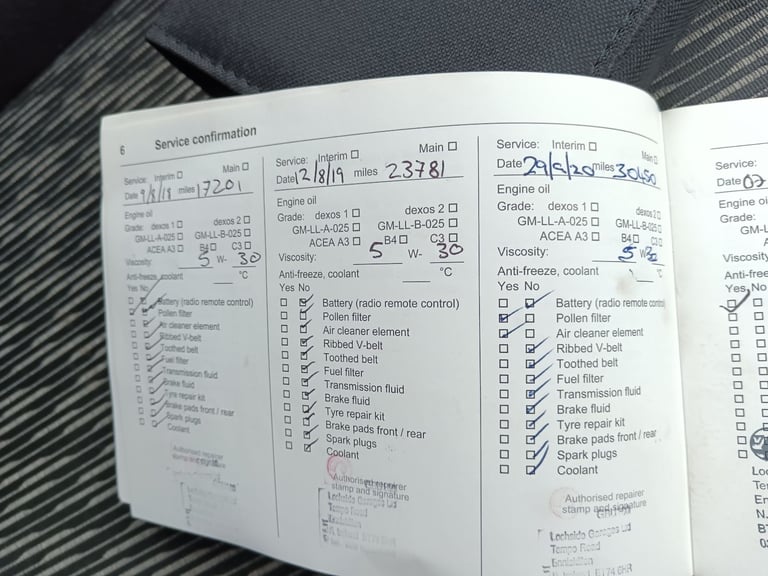 6 Service confirmation
Service: Interim ☐ Main ☐
Date 9/8/18 miles 17201
Engine oil
Grade: dexos 1 ☐ dexos 2 ☐
GM-LL-A-025 ☐ GM-LL-B-025 ☐
ACEA A3 ☐ B4 ☐ C3 ☐
Viscosity: 5 W- 30
Anti-freeze, coolant °C
Yes No
Battery (radio remote control)
Pollen filter
Air cleaner element
Ribbed V-belt
Toothed belt
Fuel filter
Transmission fluid
Brake fluid
Tyre repair kit
Brake pads front / rear
Spark plugs
Coolant
Authorised repairer
stamp and signature
Service: Interim ☐ Main ☐
Date 12/8/19 miles 23781
Engine oil
Grade: dexos 1 ☐ dexos 2 ☐
GM-LL-A-025 ☐ GM-LL-B-025 ☐
ACEA A3 ☐ B4 ☐ C3 ☐
Viscosity: 5 W- 30
Anti-freeze, coolant °C
Yes No
Battery (radio remote control)
Pollen filter
Air cleaner element
Ribbed V-belt
Toothed belt
Fuel filter
Transmission fluid
Brake fluid
Tyre repair kit
Brake pads front / rear
Spark plugs
Coolant
Authorised repairer
stamp and signature
Lochside Garages Ltd
Tempo Road
Enniskillen
Service: Interim ☐ Main ☐
Date 29/9/20 miles 30450
Engine oil
Grade: dexos 1 ☐ dexos 2 ☐
GM-LL-A-025 ☐ GM-LL-B-025 ☐
ACEA A3 ☐ B4 ☐ C3 ☐
Viscosity: 5 W- 30
Anti-freeze, coolant °C
Yes No
Battery (radio remote control)
Pollen filter
Air cleaner element
Ribbed V-belt
Toothed belt
Fuel filter
Transmission fluid
Brake fluid
Tyre repair kit
Brake pads front / rear
Spark plugs
Coolant
Authorised repairer
stamp and signature
Lochside Garages Ltd
Tempo Road
Enniskillen
Service:
Date 07
Engine oi
Grade:
GM-L
A
Viscosity
Anti-free
Yes No
Lo
Te
En
N.
B